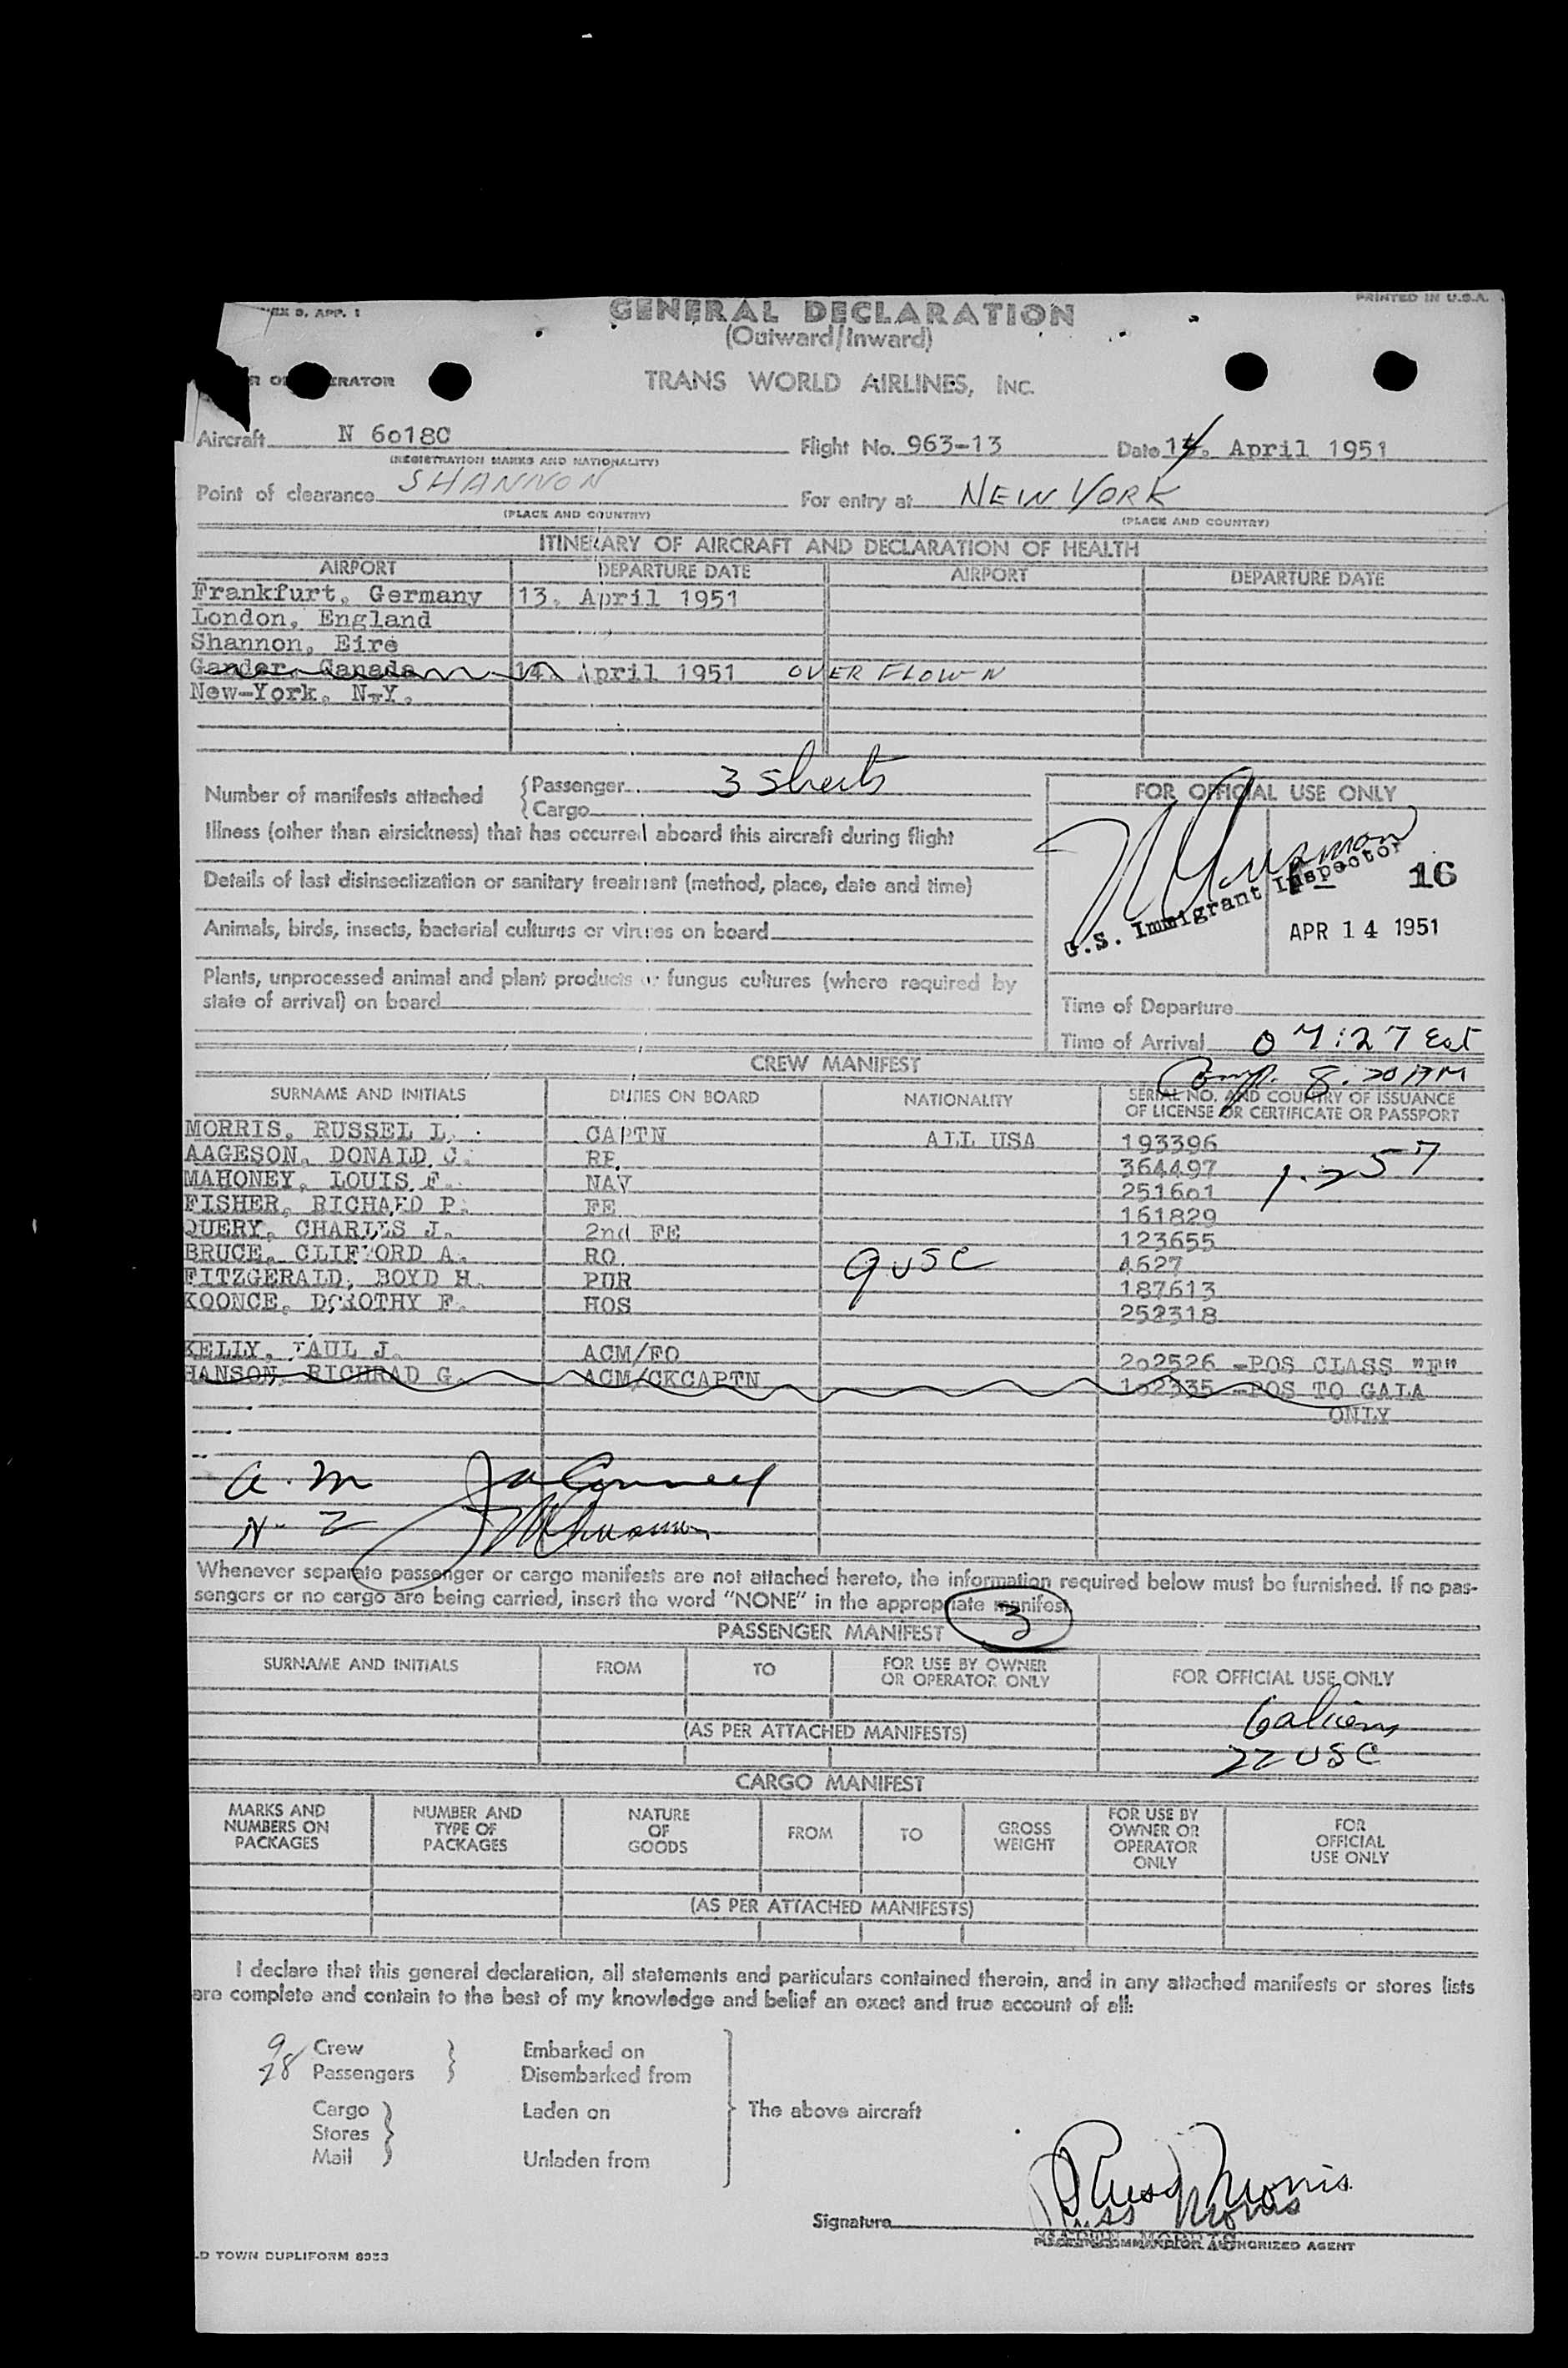 D. APP. 1
PRINTED IN U.S.A.
GENERAL DECLARATION
(Outward/Inward)
TRANS WORLD AIRLINES, INC.
Aircraft N 6018C Flight No. 963-13 Date 14. April 1951
(REGISTRATION MARKS AND NATIONALITY)
Point of clearance SHANNON For entry at NEW YORK
(PLACE AND COUNTRY) (PLACE AND COUNTRY)
ITINERARY OF AIRCRAFT AND DECLARATION OF HEALTH
AIRPORT DEPARTURE DATE AIRPORT DEPARTURE DATE
Frankfurt, Germany 13. April 1951
London, England
Shannon, Eire
Gander, Canada 14. April 1951 OVER FLOWN
New-York, N-Y.
Number of manifests attached
Passenger 3 sheets
Cargo
Illness (other than airsickness) that has occurred aboard this aircraft during flight
Details of last disinsectization or sanitary treatment (method, place, date and time)
Animals, birds, insects, bacterial cultures or viruses on board
Plants, unprocessed animal and plant products or fungus cultures (where required by
state of arrival) on board
FOR OFFICIAL USE ONLY
U.S. Immigrant Inspector
16
APR 14 1951
Time of Departure
Time of Arrival 07:27 Est
Comp. 8:20 AM
CREW MANIFEST
SURNAME AND INITIALS DUTIES ON BOARD NATIONALITY SERIAL NO. AND COUNTRY OF ISSUANCE
OF LICENSE OR CERTIFICATE OR PASSPORT
MORRIS, RUSSEL L. CAPTN ALL USA 193396
AAGESON, DONALD C. RP 364497
MAHONEY, LOUIS F. NAV 251601
FISHER, RICHARD P. FE 161829
QUERY, CHARLES J. 2nd FE 123655
BRUCE, CLIFFORD A. RO 4627
FITZGERALD, BOYD H. PUR 9 USC 187613
KOONCE, DOROTHY F. HOS 252318
KELLY, PAUL J. ACM/FO 202526 -POS CLASS "F"
HANSON, RICHRAD G. ACM/CKCAPTN -POS TO GALA
ONLY
Whenever separate passenger or cargo manifests are not attached hereto, the information required below must be furnished. If no pas-
sengers or no cargo are being carried, insert the word "NONE" in the appropriate manifest.
3
PASSENGER MANIFEST
SURNAME AND INITIALS FROM TO FOR USE BY OWNER
OR OPERATOR ONLY FOR OFFICIAL USE ONLY
6 aliens
(AS PER ATTACHED MANIFESTS)
22 USC
CARGO MANIFEST
MARKS AND
NUMBERS ON
PACKAGES
NUMBER AND
TYPE OF
PACKAGES
NATURE
OF
GOODS
FROM
TO
GROSS
WEIGHT
FOR USE BY
OWNER OR
OPERATOR
ONLY
FOR
OFFICIAL
USE ONLY
(AS PER ATTACHED MANIFESTS)
I declare that this general declaration, all statements and particulars contained therein, and in any attached manifests or stores lists
are complete and contain to the best of my knowledge and belief an exact and true account of all:
9 Crew Embarked on
28 Passengers Disembarked from
Cargo Laden on The above aircraft
Stores
Mail Unladen from
Russ Morris
Signature
AUTHORIZED AGENT
D TOWN DUPLIFORM 8933